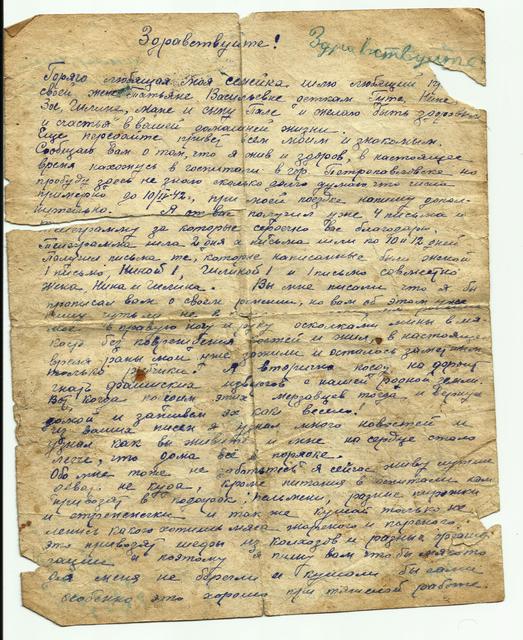 Здравствуйте!
Здравствуйте
Горячо любящая моя семейка шлю любящий
своей жене Татьяне Васильевне деткам Гуте, Нине
и желаю быть здоровы
и счастья в вашей домашней жизни.
Еще передайте привет всем моим и знакомым.
Сообщаю вам о том, что я жив и здоров, в настоящее
время нахожусь в госпитале в гор. Петропавловске но
пробуду здесь не знаю сколько долго думаю что числа
примерно до 10/II-42 г, при моей поездке напишу допол-
нительно. А от вас получил уже 4 письма и
телеграмму за которые сердечно вас благодарю.
Телеграмма шла 2 дня а письма шли по 10 и 12 дней
Получил письма те, которые написанные были женой
1 письмо, Ниной 1, 1 и 1 письмо совместно
Жена Нина и Вы мне писали что я бы
прописал вам о своем ранении, но вам об этом уже
пишу чуть ли не в
в правую ногу и руку осколками мины в мя
без повреждения костей и жил в настоящее
время раны мои уже зажили и остались заметными
только рубчики. А вторично поеду на дорогу
гнать фашистских извергов с нашей родной земли.
Вот когда побьем этих мерзавцев тогда и вернусь
домой и заживем эх как весело!
Из ваших писем я узнал много новостей и
узнал как вы живете и мне на сердце стало
легче, что дома всё в порядке.
Обо мне тоже не заботьтесь я сейчас живу лучше
не куда, кроме питания в госпитале нам
привозят в подарок: пельмени, разные пирожки
и стряпенюшки и так же кушай только не
ленись какого хотишь мяса жареного и пареного,
это привозят шефы из колхозов и разные органи-
зации и поэтому я пишу вам чтобы мясо
для меня не берегли и кушали бы сами
особенно это хорошо при тяжелой работе.